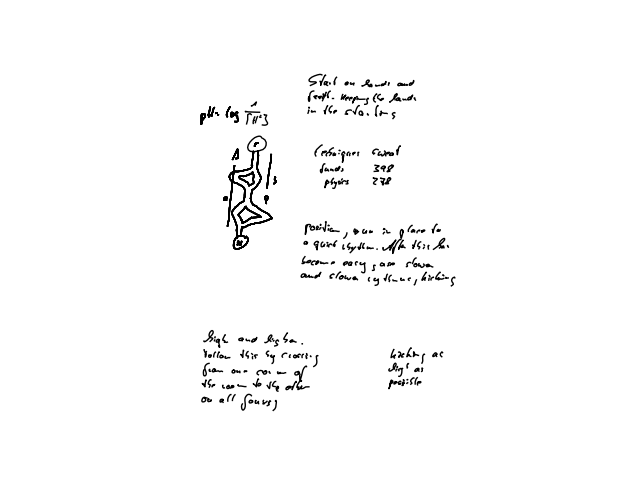 Start on hands and
feet. Keeping the hands
in the starting
pH = log 1/[H+]
techniques sweat
funds 398
physics 278
position, run in place to
a quiet rhythm. After this has
become easy, use slower
and slower rythms, kicking
high and higher.
Follow this by crossing
from one corner of
the room to the other
on all fours,
kicking as
high as
possible